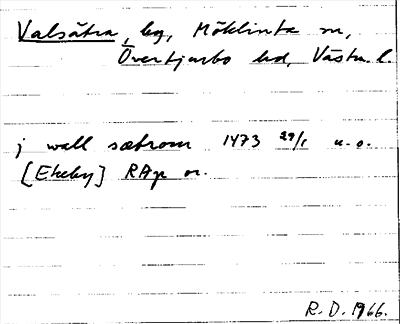 Valsätra, by, Möklinta sn,
Övertjurbo hd, Västm. l.
j wall sætrom 1473 29/1 u.o.
[Ekeby] RAp or.
R.D. 1966.